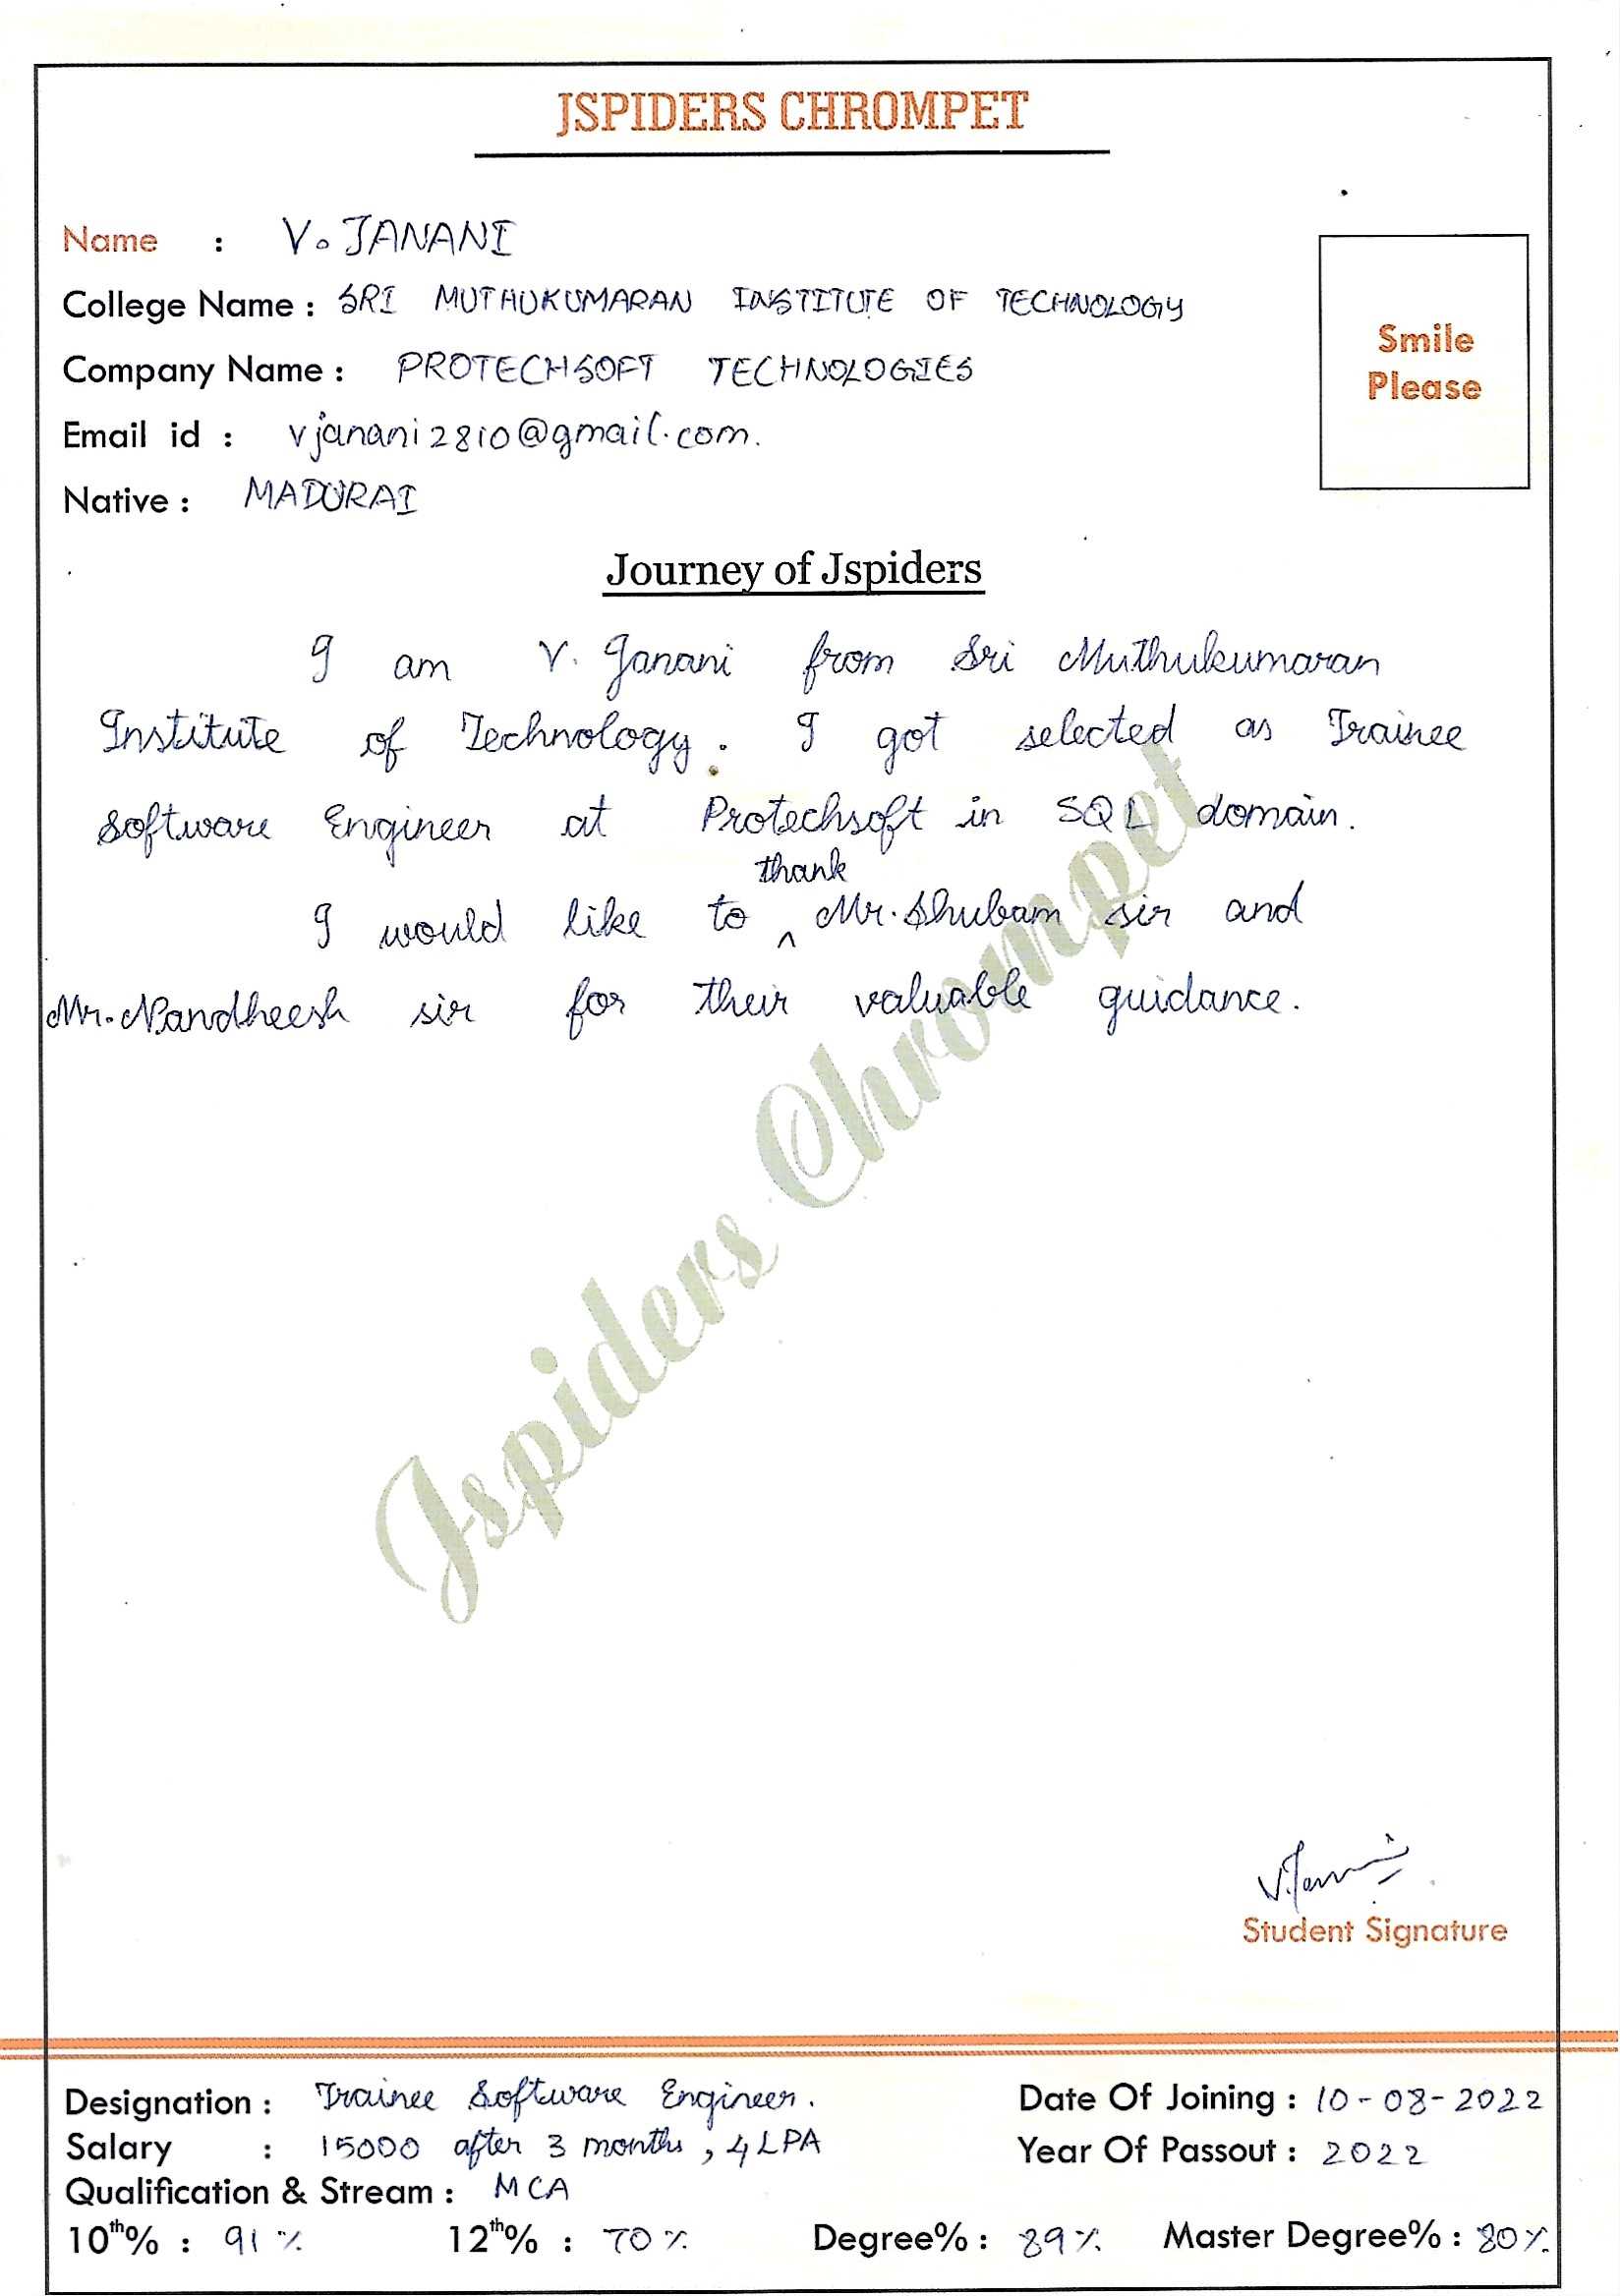 JSPIDERS CHROMPET
Name : V. JANANI
College Name : SRI MUTHUKUMARAN INSTITUTE OF TECHNOLOGY
Company Name : PROTECHSOFT TECHNOLOGIES
Email id : vjanani2810@gmail.com.
Native : MADURAI
Smile
Please
Journey of Jspiders
I am V. Janani from Sri Muthukumaran
Institute of Technology. I got selected as Trainee
Software Engineer at Protechsoft in SQL domain.
I would like to thank Mr. Shubam sir and
Mr. Nandheesh sir for their valuable guidance.
Jspiders Chrompet
V. Janani
Student Signature
Designation : Trainee Software Engineer.
Date Of Joining : 10-08-2022
Salary : 15000 after 3 months, 4 LPA
Year Of Passout : 2022
Qualification & Stream : MCA
10th% : 91 % 12th% : 70 % Degree% : 89 % Master Degree% : 80 %